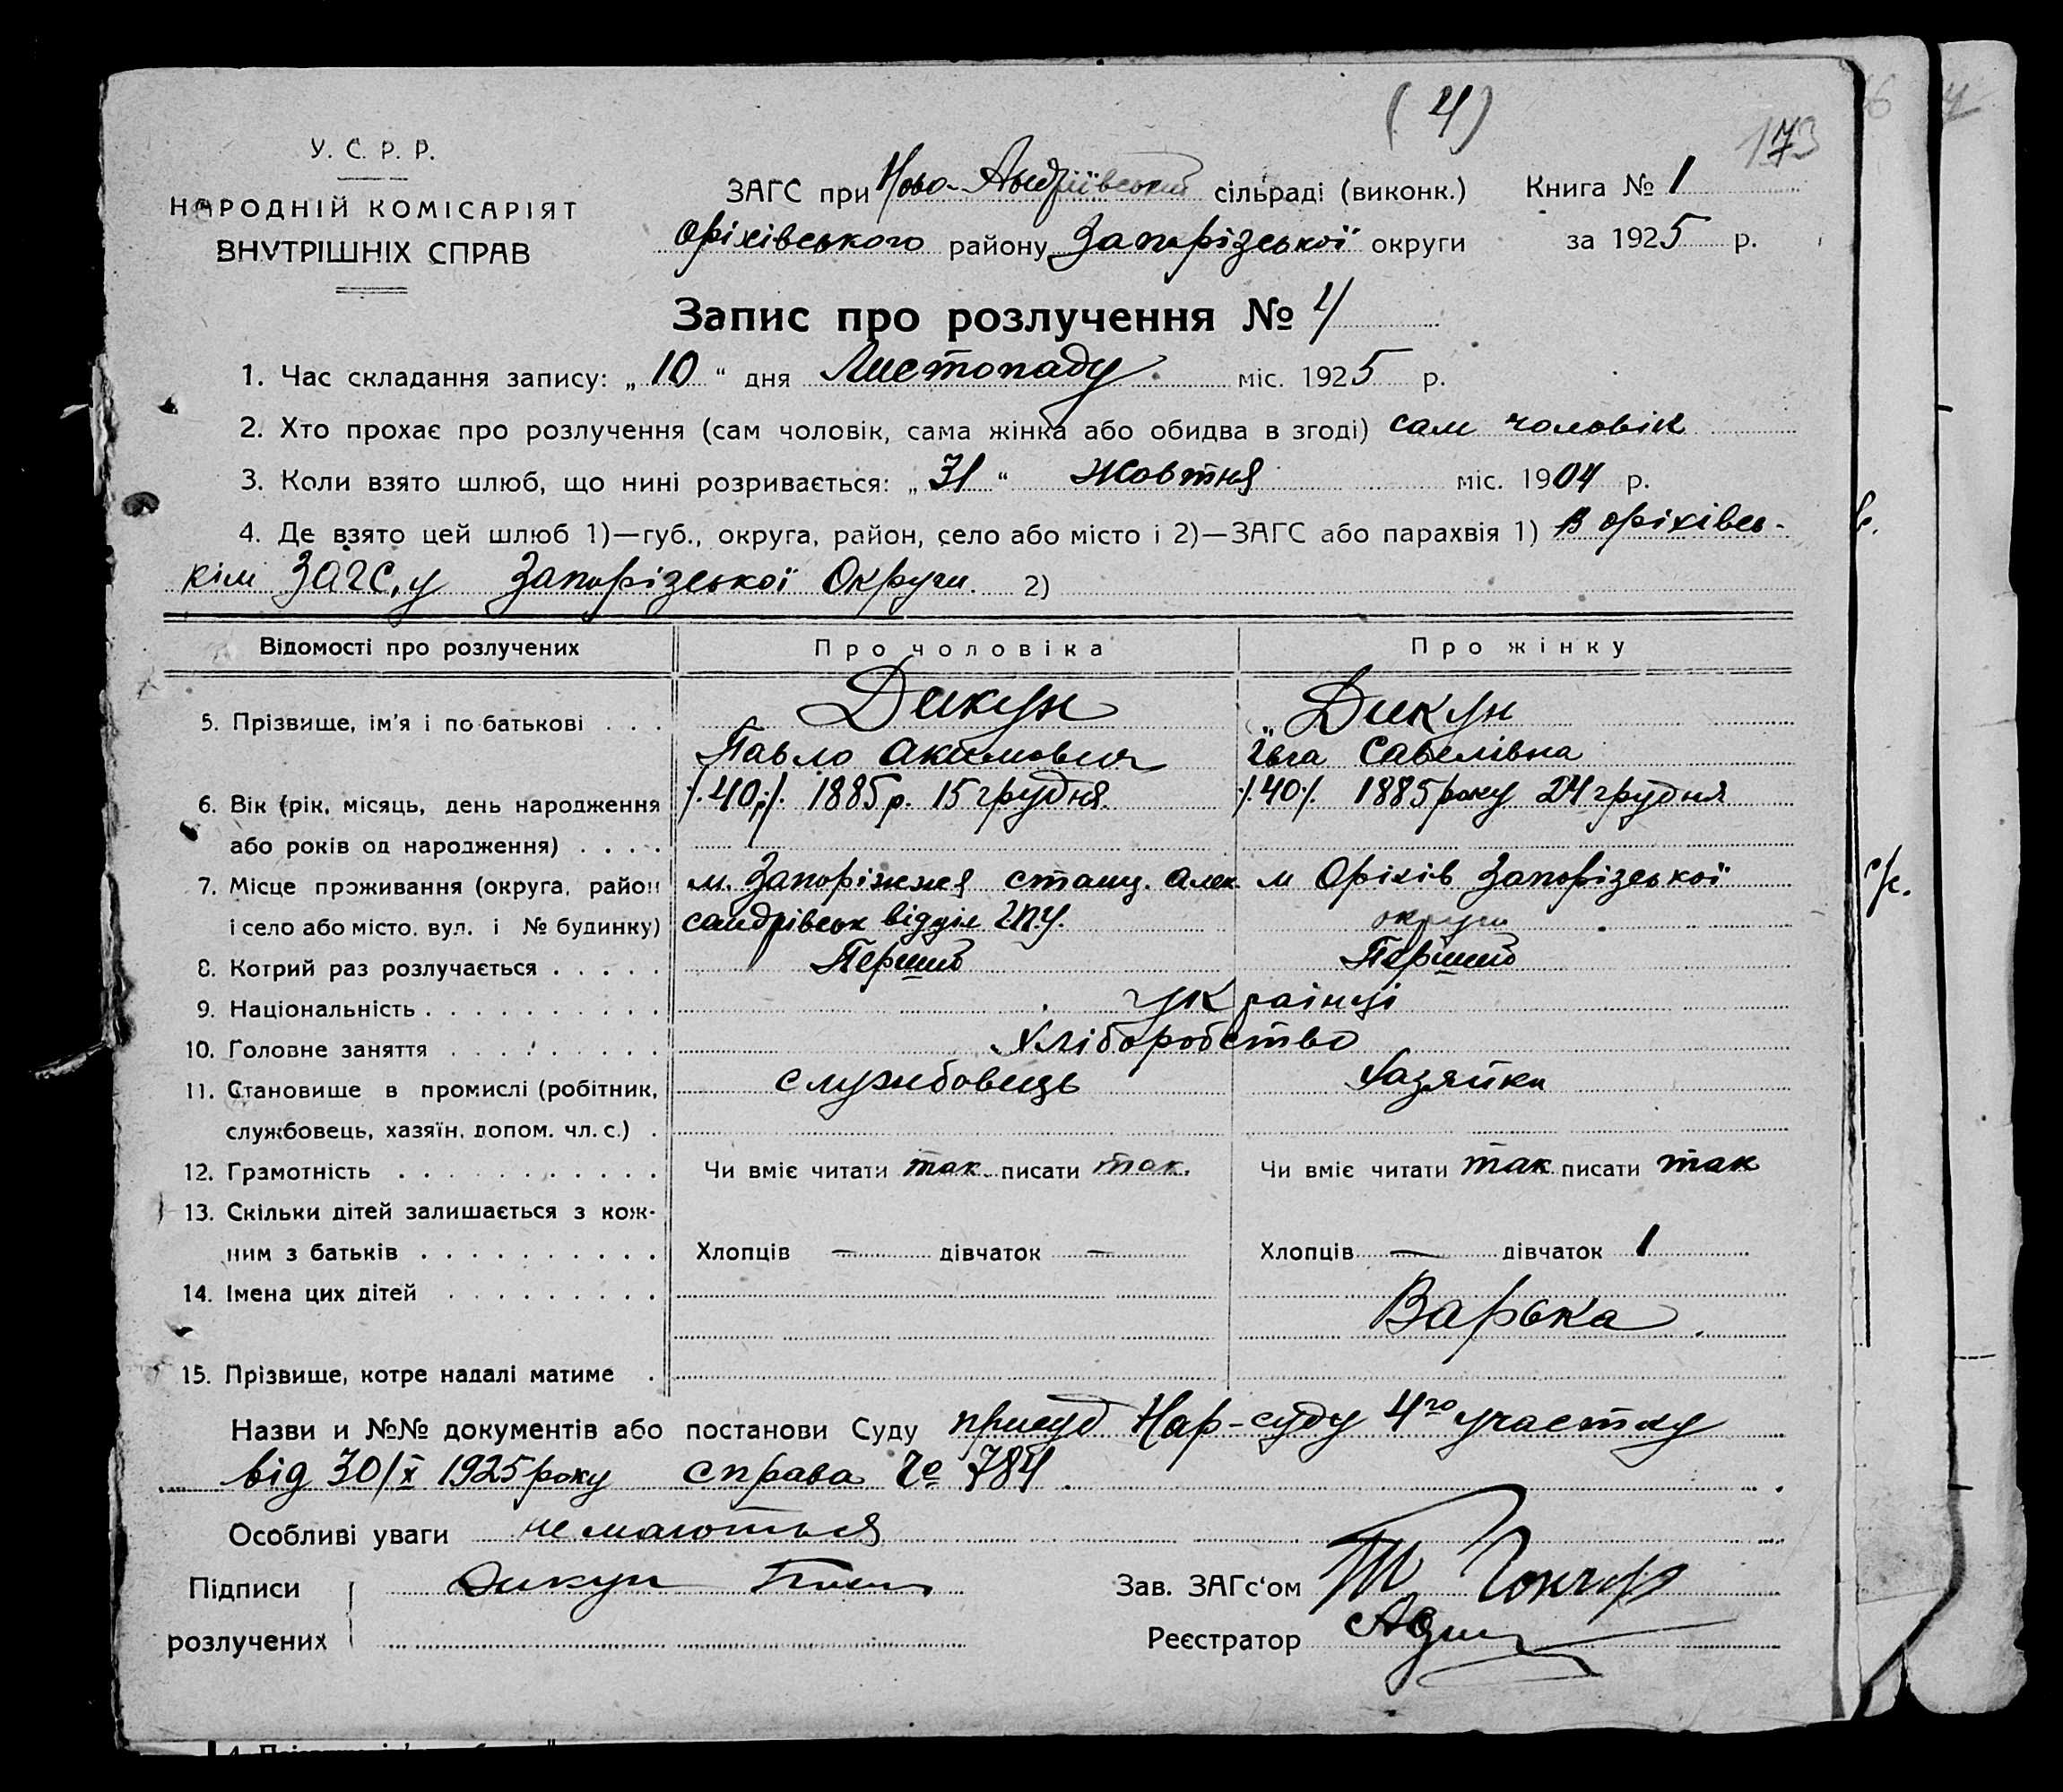 (4)
173
У. С. Р. Р.
НАРОДНІЙ КОМІСАРІЯТ
ВНУТРІШНІХ СПРАВ
ЗАГС при Ново-Андріївській сільраді (виконк.) Книга № 1
Оріхівського району Запорізської округи за 1925 р.
Запис про розлучення № 4
1. Час складання запису: „10“ дня Листопаду міс. 1925 р.
2. Хто прохає про розлучення (сам чоловік, сама жінка або обидва в згоді) сам чоловік
3. Коли взято шлюб, що нині розривається: „31“ Жовтня міс. 1904 р.
4. Де взято цей шлюб 1)—губ., округа, район, село або місто і 2)—ЗАГС або парахвія 1) В Оріхівсь-
кім ЗАГС,у Запорізської Округи. 2)
Відомості про розлучених Про чоловіка Про жінку
5. Прізвище, ім'я і по батькові . . . Дикун Дикун
Павло Акимович Ївга Савелівна
6. Вік (рік, місяць, день народження /.40р/. 1885р. 15 грудня. /.40/. 1885 року 24 грудня
або років од народження) . . . .
7. Місце проживання (округа, район м. Запоріжжя станц. Алек м Оріхів Запорізської
і село або місто, вул. і № будинку) сандрівськ відділ Г.П.У. округи
8. Котрий раз розлучається . . . . . Перший Перший
9. Національність . . . . . . . . . . українці
10. Головне заняття . . . . . . . . . Хліборобство
11. Становище в промислі (робітник, службовець Хазяйка
службовець, хазяїн, допом. чл. с.) .
12. Грамотність . . . . . . . . . . . Чи вміє читати так писати так. Чи вміє читати так писати так
13. Скільки дітей залишається з кож-
ним з батьків . . . . . . . . . . Хлопців — дівчаток — Хлопців — дівчаток 1
14. Імена цих дітей . . . . . . . . .
Варька
15. Прізвище, котре надалі матиме .
Назви и №№ документів або постанови Суду присуд Нар-суду 4го участку
від 30/X 1925 року справа Чо 784.
Особливі уваги не маються
Підписи Дикун Зав. ЗАГс'ом
розлучених Реєстратор